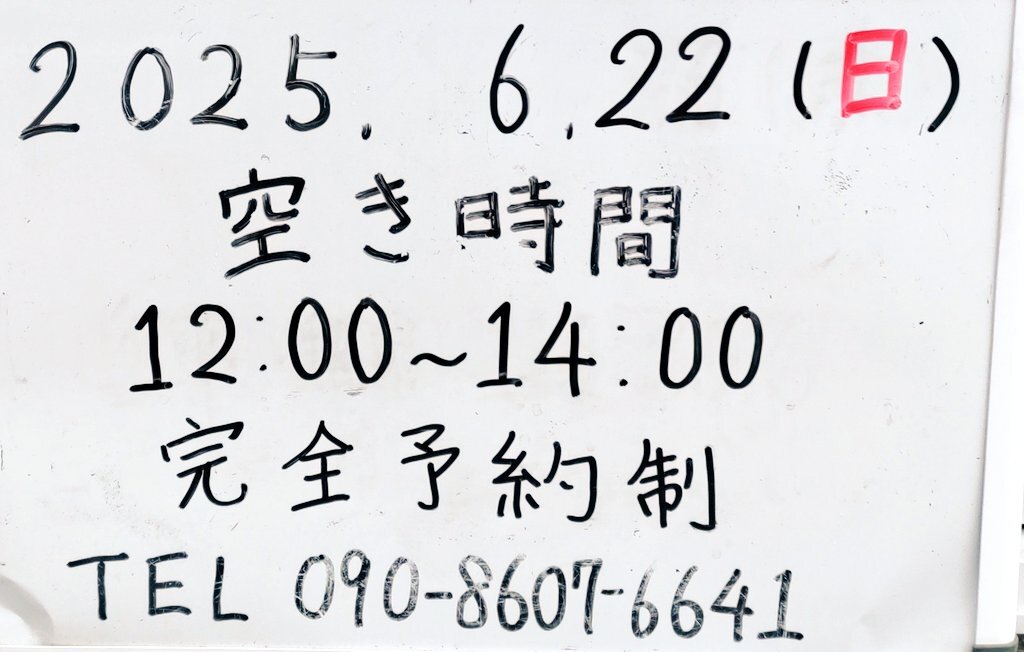 2025. 6.22 (日)
空き時間
12:00~14:00
完全予約制
TEL 090-8607-6641